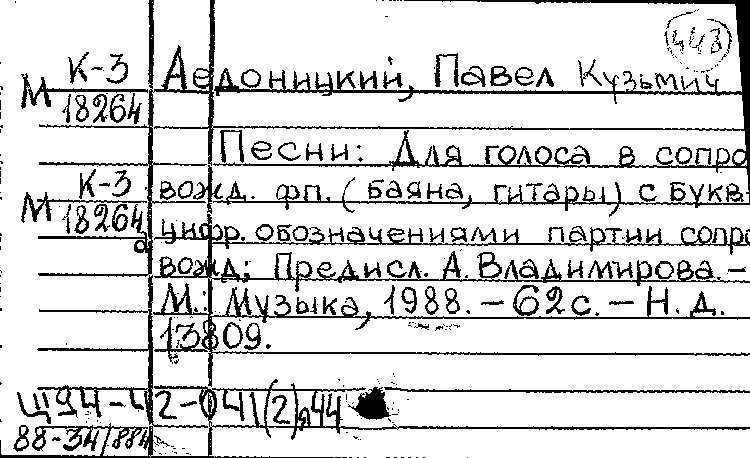 443
М К-3 18264 Аедоницкий, Павел Кузьмич
Песни: Для голоса в сопро
М К-3 18264а вожд. фп. (баяна, гитары) с букв.
цифр. обозначениями партии сопро
вожд; Предисл. А. Владимирова. –
М.: Музыка, 1988. – 62 с. – Н. д.
13809.
Щ94-42-041(2)я44
88-34/884